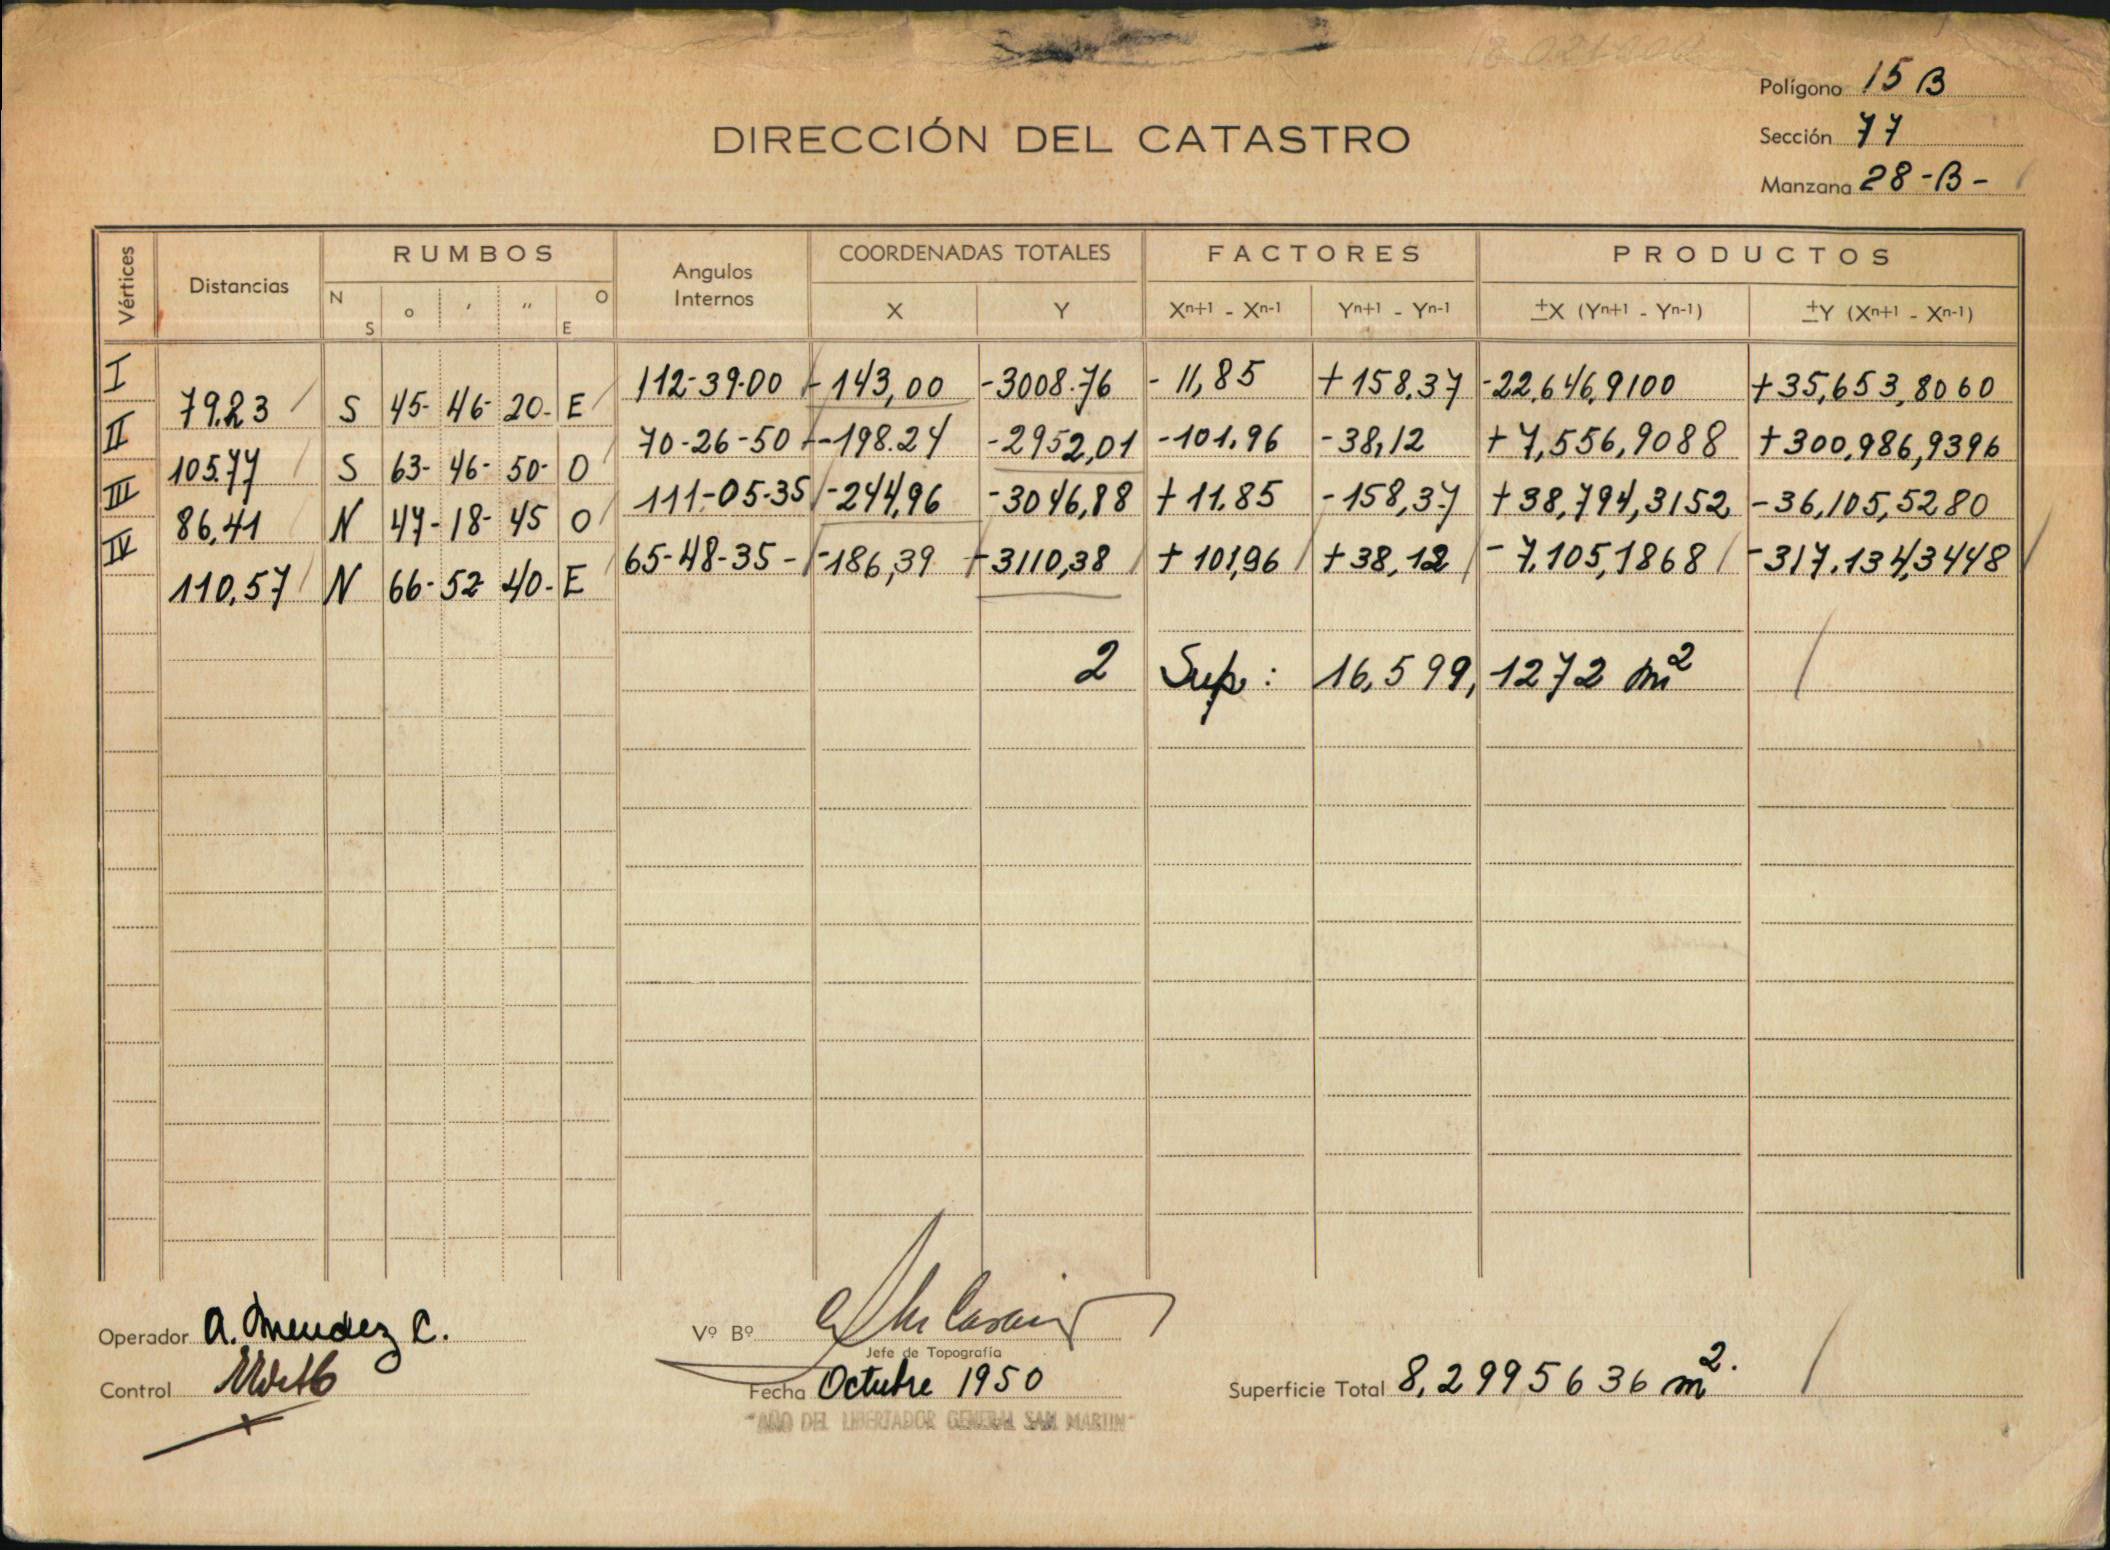 Polígono 15 B
DIRECCIÓN DEL CATASTRO
Sección 77
Manzana 28-B-
Vértices Distancias RUMBOS Angulos Internos COORDENADAS TOTALES FACTORES PRODUCTOS
N S o ' " O E X Y Xn+1 - Xn-1 Yn+1 - Yn-1 ±X (Yn+1 - Yn-1) ±Y (Xn+1 - Xn-1)
I 112-39-00 -143,00 -3008.76 -11,85 +158.37 -22.646,9100 +35,653,8060
79.23 S 45- 46- 20- E
II 70-26-50 -198.24 -2952,01 -101.96 -38,12 +7,556,9088 +300,986,9396
105.77 S 63- 46- 50- O
III 111-05-35 -244,96 -3046,88 +11.85 -158,37 +38,794,3152 -36,105,5280
86,41 N 47- 18- 45 O
IV 65-48-35- -186,39 -3110,38 +101,96 +38,12 -7,105,1868 -317.134,3448
110.57 N 66- 52 40- E
2 Sup: 16,599,1272 m2
Operador A. Mendez C.
Vº Bº
Jefe de Topografía
Control
Fecha Octubre 1950
Superficie Total 8,2995636 m2.
"AÑO DEL LIBERTADOR GENERAL SAN MARTIN"